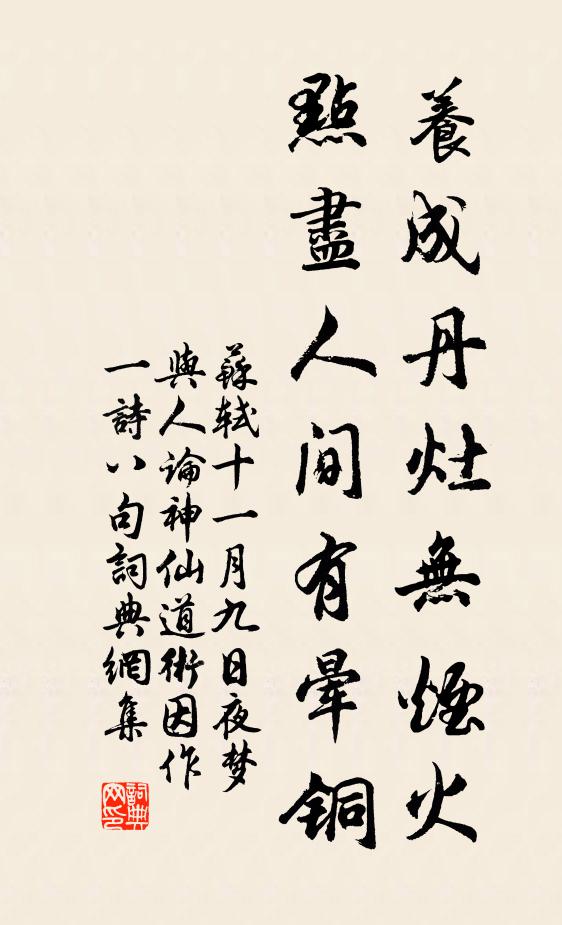 養成丹灶無煙火
點盡人间有暈铜
蘇轼十一月九日夜梦
與人論神仙道術因作
一詩八句詞典網集
詞典
网印